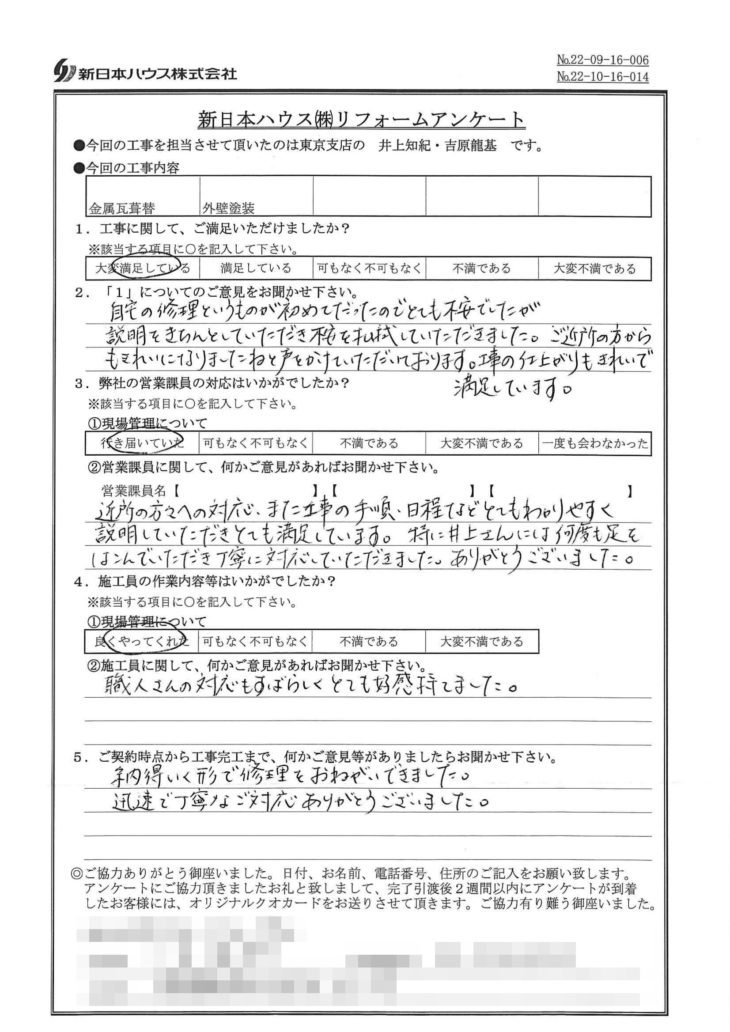 新日本ハウス株式会社
№22-09-16-006
№22-10-16-014
新日本ハウス㈱リフォームアンケート
●今回の工事を担当させて頂いたのは東京支店の 井上知紀・吉原龍基 です。
●今回の工事内容
金属瓦葺替 外壁塗装
1．工事に関して、ご満足いただけましたか？
※該当する項目に○を記入して下さい。
大変満足している 満足している 可もなく不可もなく 不満である 大変不満である
2．「1」についてのご意見をお聞かせ下さい。
自宅の修理というものが初めてだったのでとても不安でしたが
説明をきちんとしていただき不安を払拭していただきました。ご近所の方から
もきれいになりましたねと声をかけていただいております。工事の仕上がりもきれいで
満足しています。
3．弊社の営業課員の対応はいかがでしたか？
※該当する項目に○を記入して下さい。
①現場管理について
行き届いていた 可もなく不可もなく 不満である 大変不満である 一度も会わなかった
②営業課員に関して、何かご意見があればお聞かせ下さい。
営業課員名【 】【 】【 】
近所の方々への対応、また工事の手順・日程などとてもわかりやすく
説明していただきとても満足しています。特に井上さんには何度も足を
はこんでいただき丁寧に対応していただきました。ありがとうございました。
4．施工員の作業内容等はいかがでしたか？
※該当する項目に○を記入して下さい。
①現場管理について
良くやってくれた 可もなく不可もなく 不満である 大変不満である
②施工員に関して、何かご意見があればお聞かせ下さい。
職人さんの対応もすばらしくとても好感持てました。
5．ご契約時点から工事完工まで、何かご意見等がありましたらお聞かせ下さい。
納得いく形で修理をおねがいできました。
迅速で丁寧なご対応ありがとうございました。
◎ご協力ありがとう御座いました。日付、お名前、電話番号、住所のご記入をお願い致します。
アンケートにご協力頂きましたお礼と致しまして、完了引渡後２週間以内にアンケートが到着
したお客様には、オリジナルクオカードをお送りさせて頂きます。ご協力有り難う御座いました。